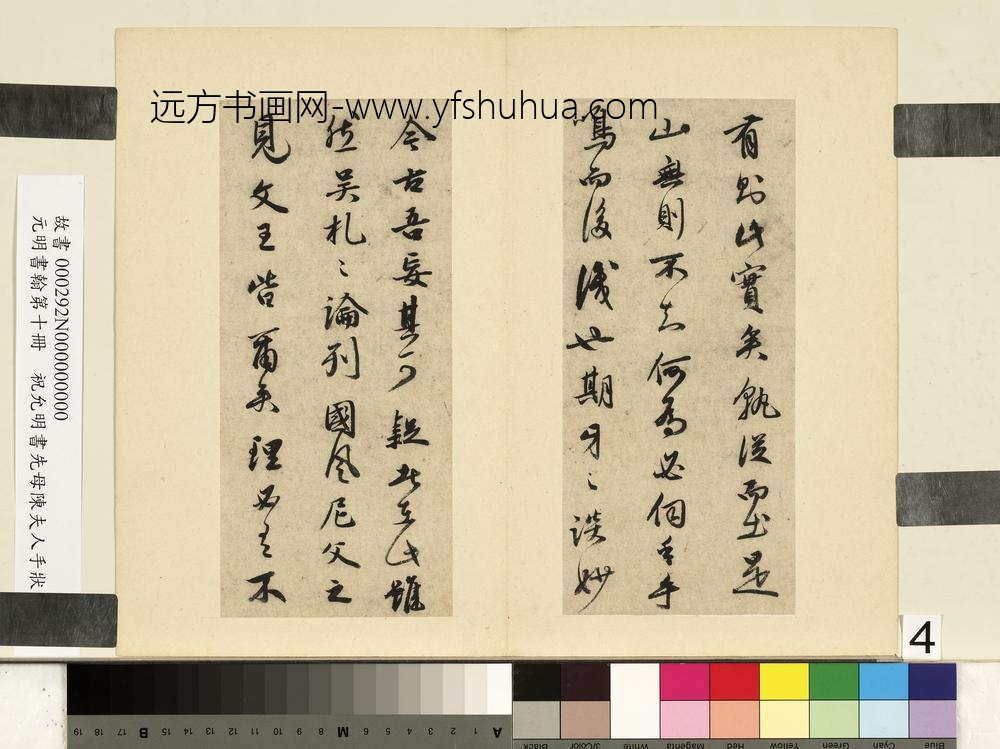 远方书画网-www.yfshuhua.com
有則此實矣孰從而是
山無則不知何為必伺吾手
鳴而後識也期牙之談妙
今古吾妄其可疑此在此雖
然吴札之論列國風尼父之
見文王皆爾矣理必有不
故書 000292N000000000
元明書翰第十冊 祝允明書先母陳夫人手狀
4
19 18 17 B 16 15 14 13 12 11 10 9 8 M 7 6 5 4 3 2 1 A
Black 3/Color White Magenta Red Yellow Green Cyan Blue